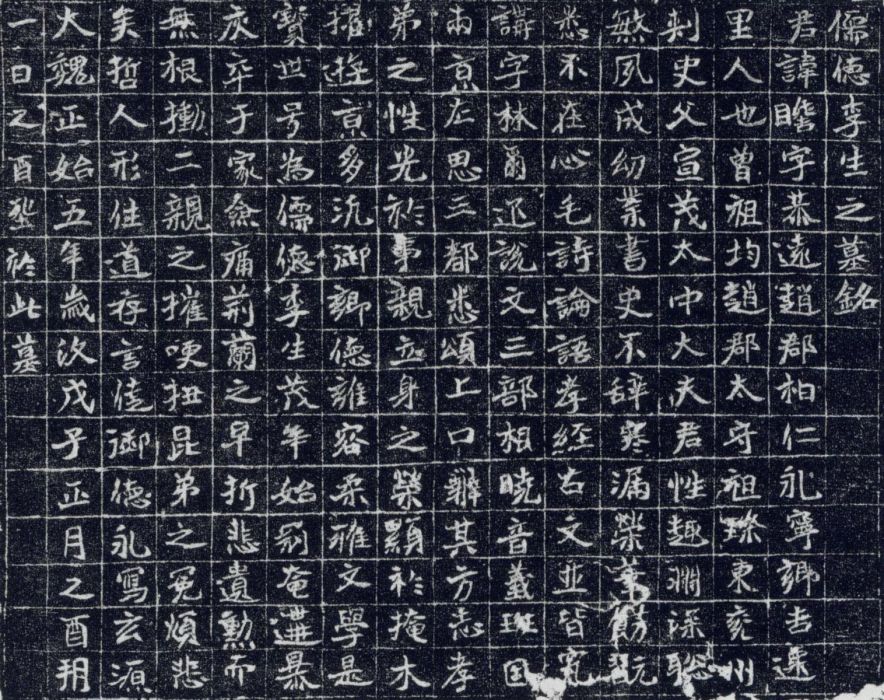 儒德李生之墓銘
君諱瞻字恭遠趙郡柏仁永寧鄉吉遷
里人也曾祖均趙郡太守祖璨東兗州
刺史父宣茂太中大夫君性趣淵深聡
敏夙成幼業書史不辞寒漏榮餝玩
悉不在心毛詩論語孝經古文並皆究
講字林爾迩說文三部相曉音義班固
兩京左思三都悉頌上口辭其方志孝
弟之性光於事親立身之榮顯於掩木
擢遊京多汎御鄉德雍容柔雅文學是
寶世号為儒德李生茂年始奄遘暴
灰卒于家僉痛荊蘭之早折悲遺勳而
無根慟二親之摧哽抽昆弟之冤煩悲
矣哲人形徃道存言徃御德永寫玄源
大魏正始五年歲次戊子正月之酉朔
一日之酉塟於此墓